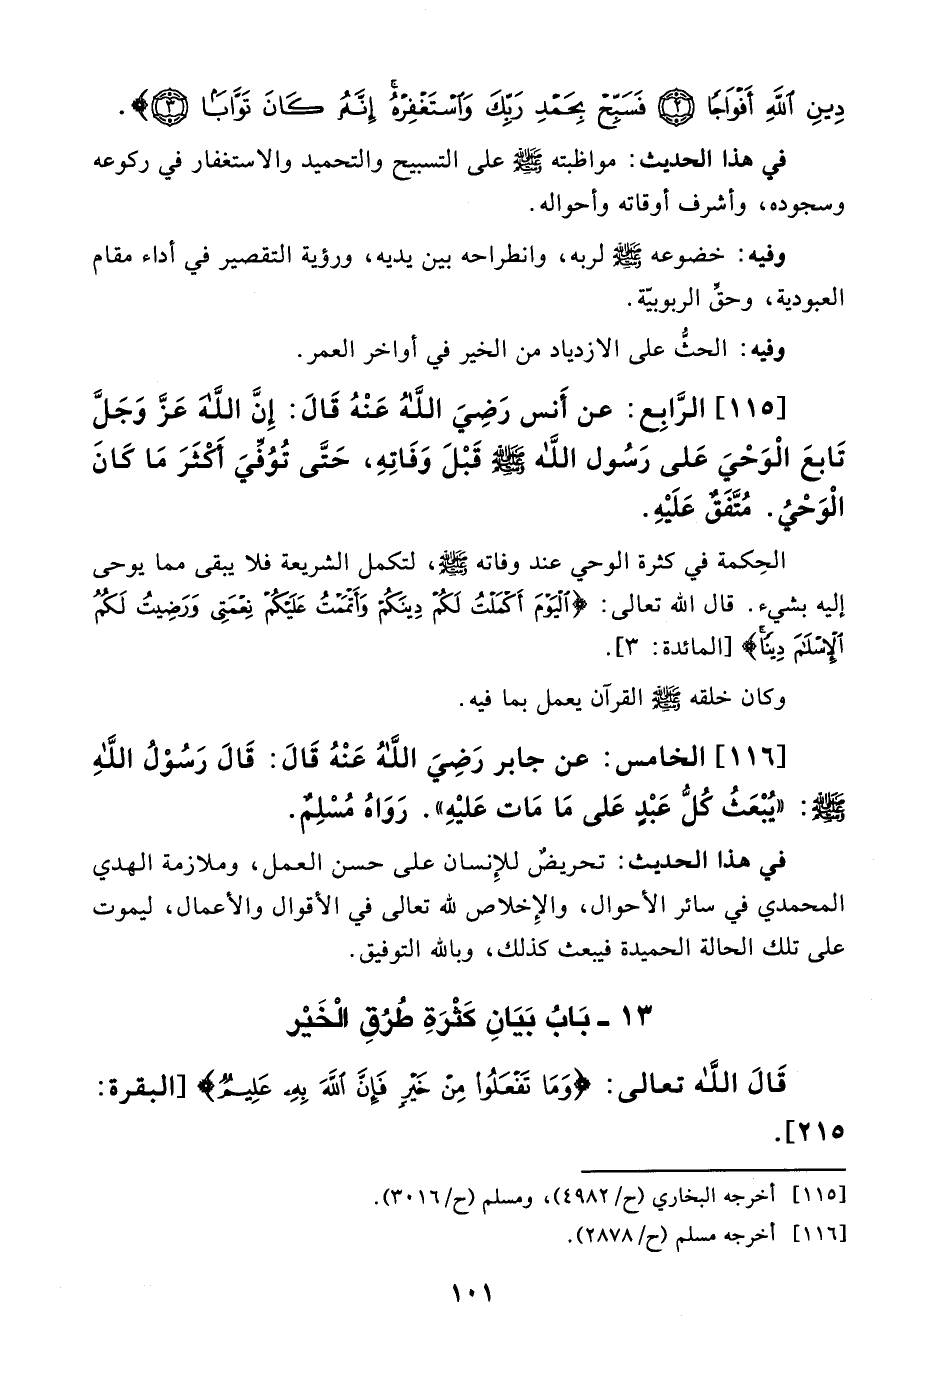 دِينِ ٱللَّهِ أَفْوَاجًا ﴿٢﴾ فَسَبِّحْ بِحَمْدِ رَبِّكَ وَٱسْتَغْفِرْهُ ۚ إِنَّهُۥ كَانَ تَوَّابًۢا ﴿٣﴾﴾.
في هذا الحديث: مواظبته ﷺ على التسبيح والتحميد والاستغفار في ركوعه
وسجوده، وأشرف أوقاته وأحواله.
وفيه: خضوعه ﷺ لربه، وانطراحه بين يديه، ورؤية التقصير في أداء مقام
العبودية، وحقِّ الربوبيّة.
وفيه: الحثُّ على الازدياد من الخير في أواخر العمر.
[١١٥] الرَّابِع: عن أَنس رَضِيَ اللَّهُ عَنْهُ قَالَ: إِنَّ اللَّهَ عَزَّ وَجَلَّ
تَابعَ الْوَحْيَ عَلى رَسُول اللَّه ﷺ قَبْلَ وَفَاتِهِ، حَتَّى تُوُفِّيَ أَكْثَرَ مَا كَانَ
الْوَحْيُ. مُتَّفَقٌ عَلَيْهِ.
الحِكمة في كثرة الوحي عند وفاته ﷺ، لتكمل الشريعة فلا يبقى مما يوحى
إليه بشيء. قال الله تعالى: ﴿ٱلْيَوْمَ أَكْمَلْتُ لَكُمْ دِينَكُمْ وَأَتْمَمْتُ عَلَيْكُمْ نِعْمَتِى وَرَضِيتُ لَكُمُ
ٱلْإِسْلَٰمَ دِينًا ۚ﴾ [المائدة: ٣].
وكان خلقه ﷺ القرآن يعمل بما فيه.
[١١٦] الخامس: عن جابر رَضِيَ اللَّهُ عَنْهُ قَالَ: قَالَ رَسُوْلُ اللَّهِ
ﷺ: «يُبْعَثُ كُلُّ عَبْدٍ عَلى مَا مَات عَلَيْهِ». رَوَاهُ مُسْلِمٌ.
في هذا الحديث: تحريضٌ للإِنسان على حسن العمل، وملازمة الهدي
المحمدي في سائر الأحوال، والإخلاص لله تعالى في الأقوال والأعمال، ليموت
على تلك الحالة الحميدة فيبعث كذلك، وبالله التوفيق.
١٣ ـ بَابُ بَيَانِ كَثْرَةِ طُرُقِ الْخَيْر
قَالَ اللَّه تعالى: ﴿وَمَا تَفْعَلُوا۟ مِنْ خَيْرٍ فَإِنَّ ٱللَّهَ بِهِۦ عَلِيمٌ﴾ [البقرة:
٢١٥].
[١١٥] أخرجه البخاري (ح/ ٤٩٨٢)، ومسلم (ح/ ٣٠١٦).
[١١٦] أخرجه مسلم (ح/ ٢٨٧٨).
١٠١